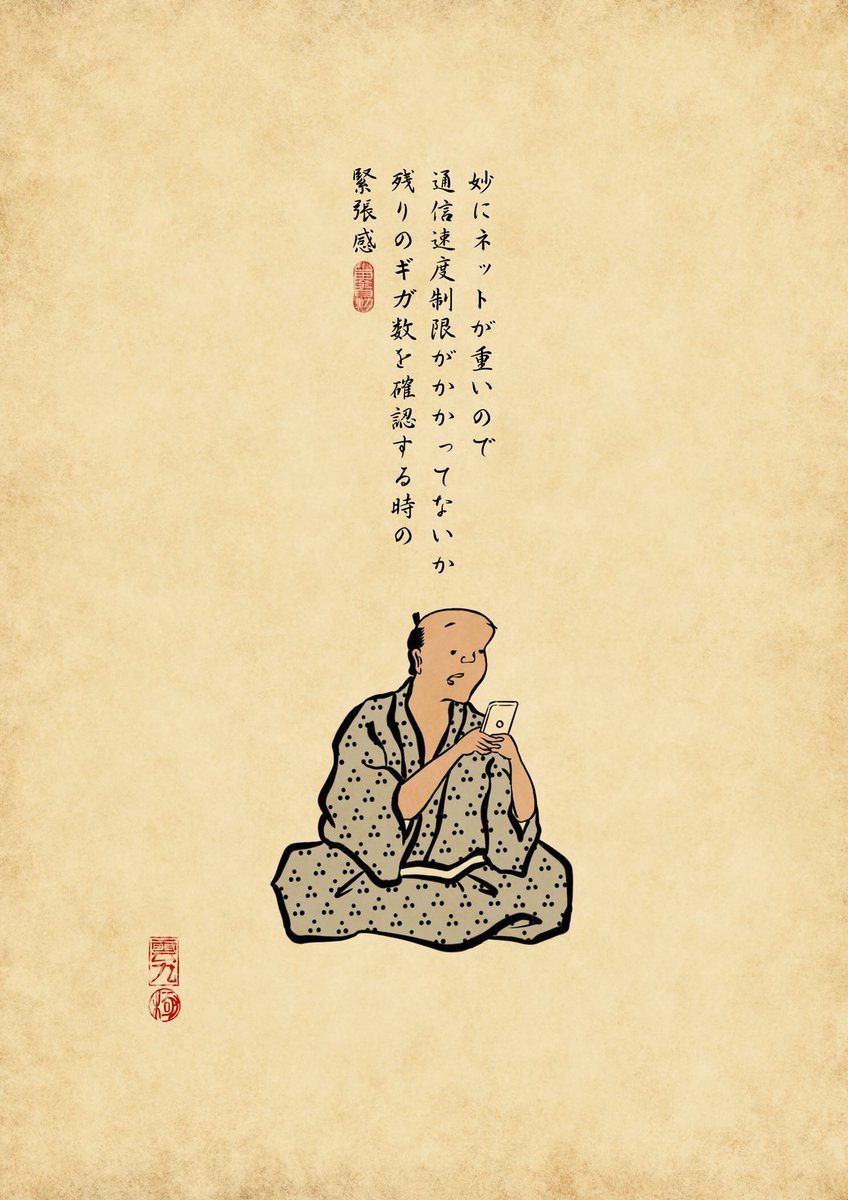 妙にネットが重いので
通信速度制限がかかってないか
残りのギガ数を確認する時の
緊張感